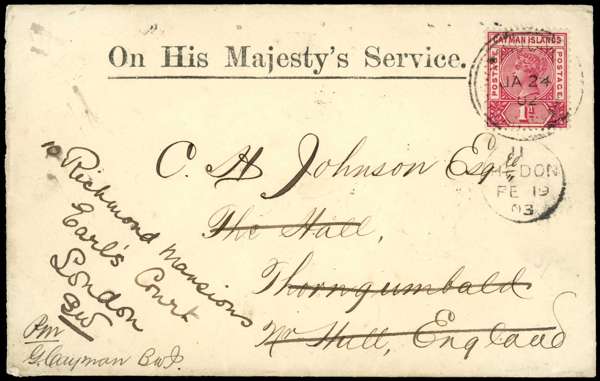 On His Majesty's Service.
CAYMAN ISLANDS
POSTAGE
POSTAGE
1d
JA 24
02
11
HEDON
FE 19
03
C. H Johnson Esq
The Hall,
Thorngumbald
Nr Hull, England
10 Richmond Mansions
Earl's Court
London
SW
G. Cayman B.W.I.